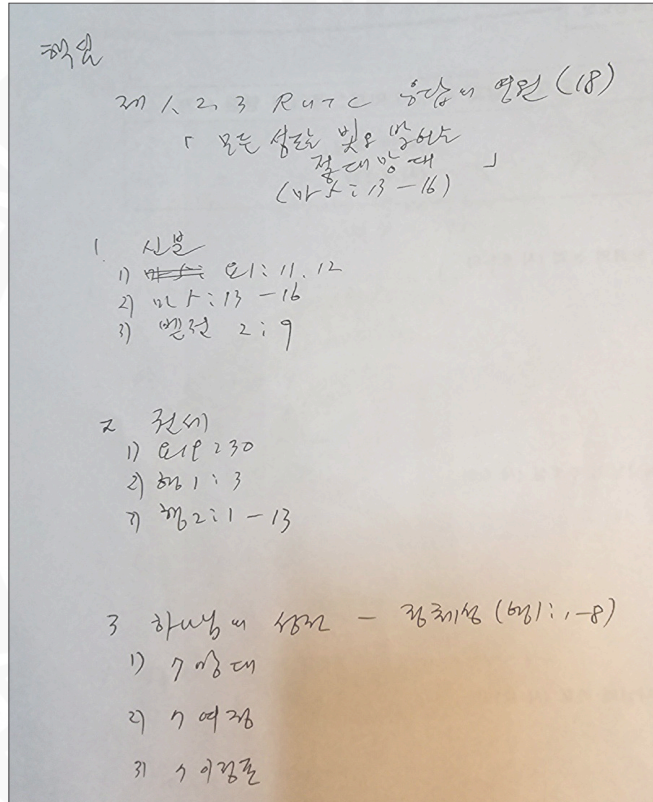 핵심
제 1, 2, 3 RUTC 응답의 영원 (18)
「 모든 성도는 빛을 발하는
절대망대 」
(마 5:13-16)
1. 신분
1) 요1:11, 12
2) 마 5:13-16
3) 벧전 2:9
2 권세
1) 요19:30
2) 행1:3
3) 행2:1-13
3 하나님의 성전 - 정체성 (행1:1-8)
1) 7 망대
2) 7 여정
3) 7 이정표